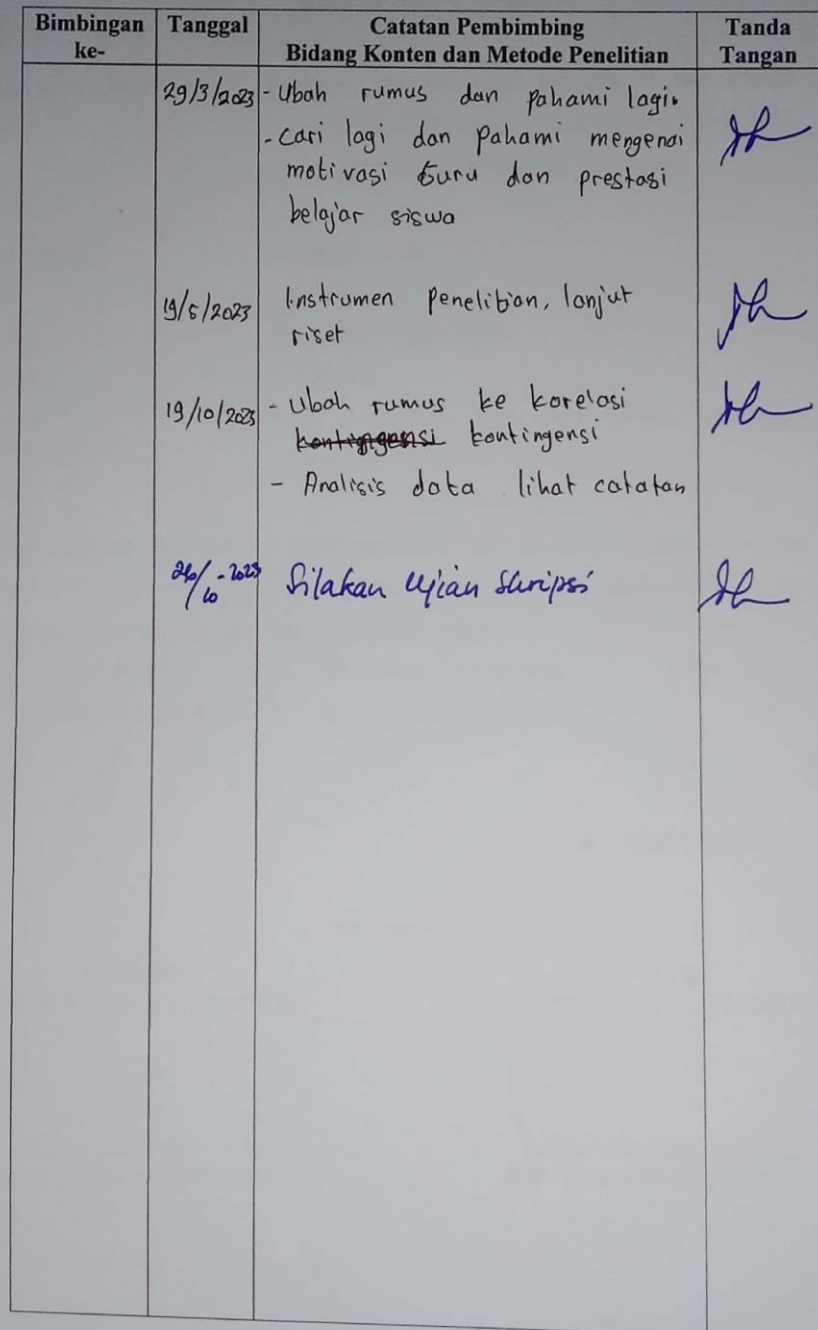 Bimbingan ke-
Tanggal
Catatan Pembimbing
Bidang Konten dan Metode Penelitian
Tanda Tangan
29/3/2023 - Ubah rumus dan pahami lagi.
- Cari lagi dan pahami mengenai
motivasi Guru dan prestasi
belajar siswa
19/5/2023 Instrumen Penelitian, lanjut
riset
19/10/2023 - Ubah rumus ke korelasi
kontingensi kontingensi
- Analisis data lihat catatan
26/10-2023 Silakan Ujian Skripsi